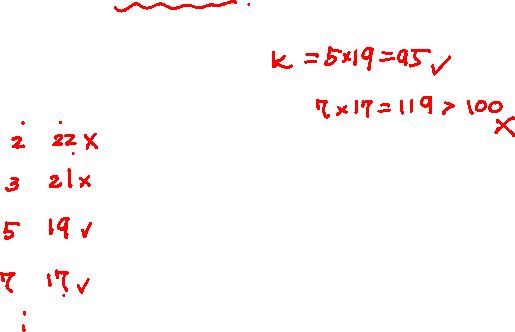 k = 5×19 = 95 ✓
7×17 = 119 > 100 ×
2 22 ×
3 21 ×
5 19 ✓
7 17 ✓
⋮